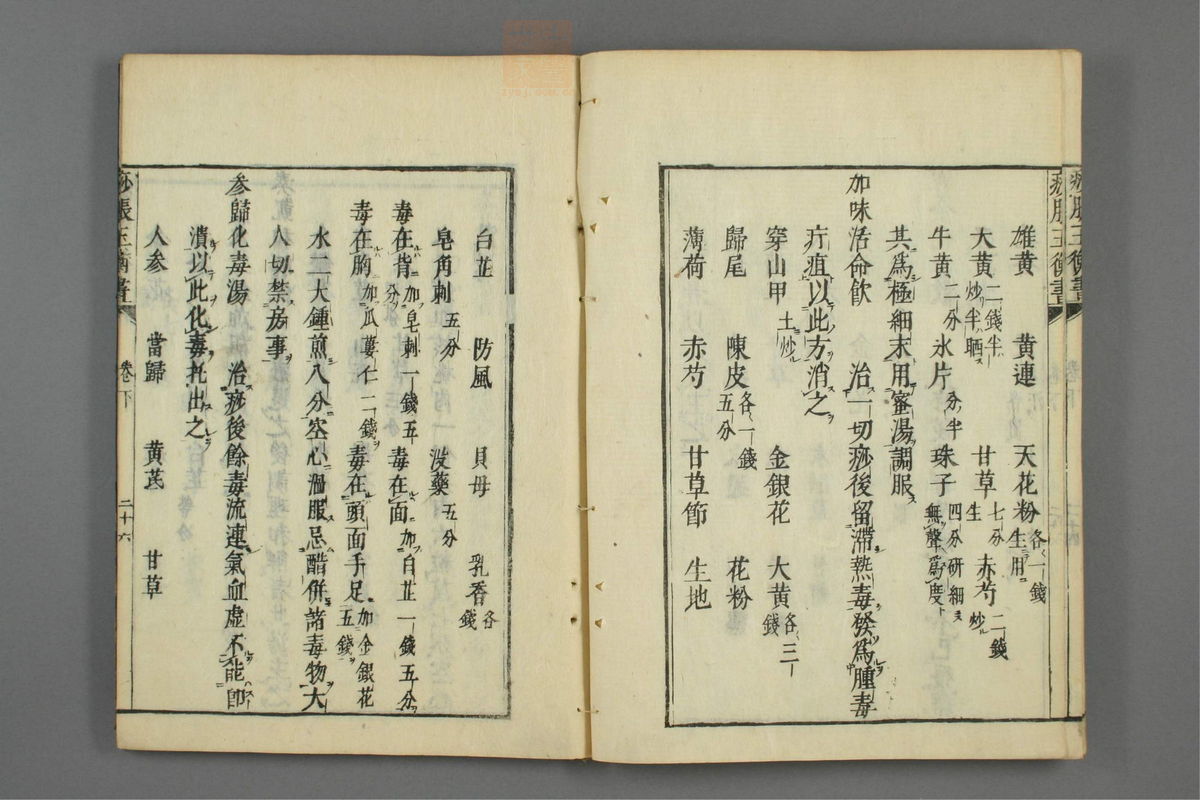 痧脹玉衡書
雄黃 黃連 天花粉 各一錢生用
大黃 二錢半炒半晒 甘草 七分生 赤芍 二錢炒
牛黃 二分 氷片 分半 珠子 四分研細無聲為度
共為極細末用蜜湯調服
加味活命飲 治一切痧後留滯熱毒發為腫毒
疔疽以此方消之
穿山甲 土炒 金銀花 大黃 各三錢
歸尾 陳皮 各一錢五分 花粉
薄荷 赤芍 甘草節 生地
白芷 防風 貝母 乳香 各錢
皂角刺 五分 沒藥 五分
毒在背 加皂刺一錢五分 毒在面 加白芷一錢五分
毒在胸 加瓜蔞仁二錢 毒在頭面手足 加金銀花五錢
水二大鍾煎八分空心溫服忌醋併諸毒物大
人切禁房事
參歸化毒湯 治痧後餘毒流連氣血虛不能卽
潰以此化毒托出之
人參 當歸 黃芪 甘草
痧脹玉衡書 卷下 二十六